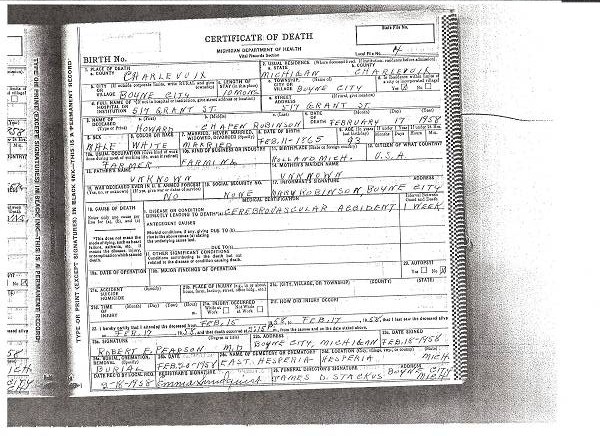 State File No.
CERTIFICATE OF DEATH
MICHIGAN DEPARTMENT OF HEALTH
Vital Records Section
Local File No. 4
BIRTH No.
1. PLACE OF DEATH
a. COUNTY CHARLEVOIX
2. USUAL RESIDENCE
a. STATE MICHIGAN b. COUNTY CHARLEVOIX
b. CITY OR VILLAGE BOYNE CITY c. LENGTH OF STAY (in this place) 10 MONS
c. TOWNSHIP, CITY OR VILLAGE BOYNE CITY
d. FULL NAME OF HOSPITAL OR INSTITUTION 517 GRANT ST.
STREET ADDRESS 517 GRANT ST.
3. NAME OF DECEASED (Type or Print) HOWARD CHAPEN ROBINSON
4. DATE OF DEATH FEBRUARY 17 1958
5. SEX 6. COLOR OR RACE 7. MARRIED, NEVER MARRIED, WIDOWED, DIVORCED (Specify) 8. DATE OF BIRTH 9. AGE
MALE WHITE MARRIED FEB. 11-1865 93
10a. USUAL OCCUPATION 10b. KIND OF BUSINESS OR INDUSTRY 11. BIRTHPLACE (State or foreign country) 12. CITIZEN OF WHAT COUNTRY?
FARMER FARMING HOLLAND MICH. U.S.A.
13. FATHER'S NAME 14. MOTHER'S MAIDEN NAME
UNKNOWN UNKNOWN
15. WAS DECEASED EVER IN U.S. ARMED FORCES? 16. SOCIAL SECURITY NO. 17. INFORMANT'S SIGNATURE ADDRESS
NO NONE MARY ROBINSON, BOYNE CITY
MEDICAL CERTIFICATION
18. CAUSE OF DEATH
I. DISEASE OR CONDITION DIRECTLY LEADING TO DEATH (a) CEREBROVASCULAR ACCIDENT 1 WEEK
ANTECEDENT CAUSES
DUE TO (b)
DUE TO (c)
II. OTHER SIGNIFICANT CONDITIONS
Conditions contributing to the death but not related to the disease or condition causing death.
19a. DATE OF OPERATION 19b. MAJOR FINDINGS OF OPERATION
20. AUTOPSY
Yes No
21a. ACCIDENT SUICIDE HOMICIDE (Specify) 21b. PLACE OF INJURY 21c. (CITY, VILLAGE, OR TOWNSHIP) (COUNTY) (STATE)
21d. TIME OF INJURY (Month) (Day) (Year) (Hour) 21e. INJURY OCCURRED 21f. HOW DID INJURY OCCUR?
22. I hereby certify that I attended the deceased from FEB. 15 1958, to FEB. 17, 1958, that I last saw the deceased alive
on FEB. 17 1958, and that death occurred at m., from the causes and on the date stated above.
23a. SIGNATURE (Degree or title) 23b. ADDRESS 23c. DATE SIGNED
ROBERT E. PEARSON M.D. BOYNE CITY, MICHIGAN FEB. 18-1958
24a. BURIAL, CREMATION, REMOVAL (Specify) 24b. DATE 24c. NAME OF CEMETERY OR CREMATORY 24d. LOCATION
BURIAL FEB. 20-1958 EAST HESPERIA - HESPERIA MICH.
DATE REC'D BY LOCAL REG. REGISTRAR'S SIGNATURE 25. FUNERAL DIRECTOR'S SIGNATURE ADDRESS
2-18-1958 JAMES D. STACKUS BOYNE CITY MICH.
TYPE OR PRINT (EXCEPT SIGNATURES) IN BLACK INK—THIS IS A PERMANENT RECORD